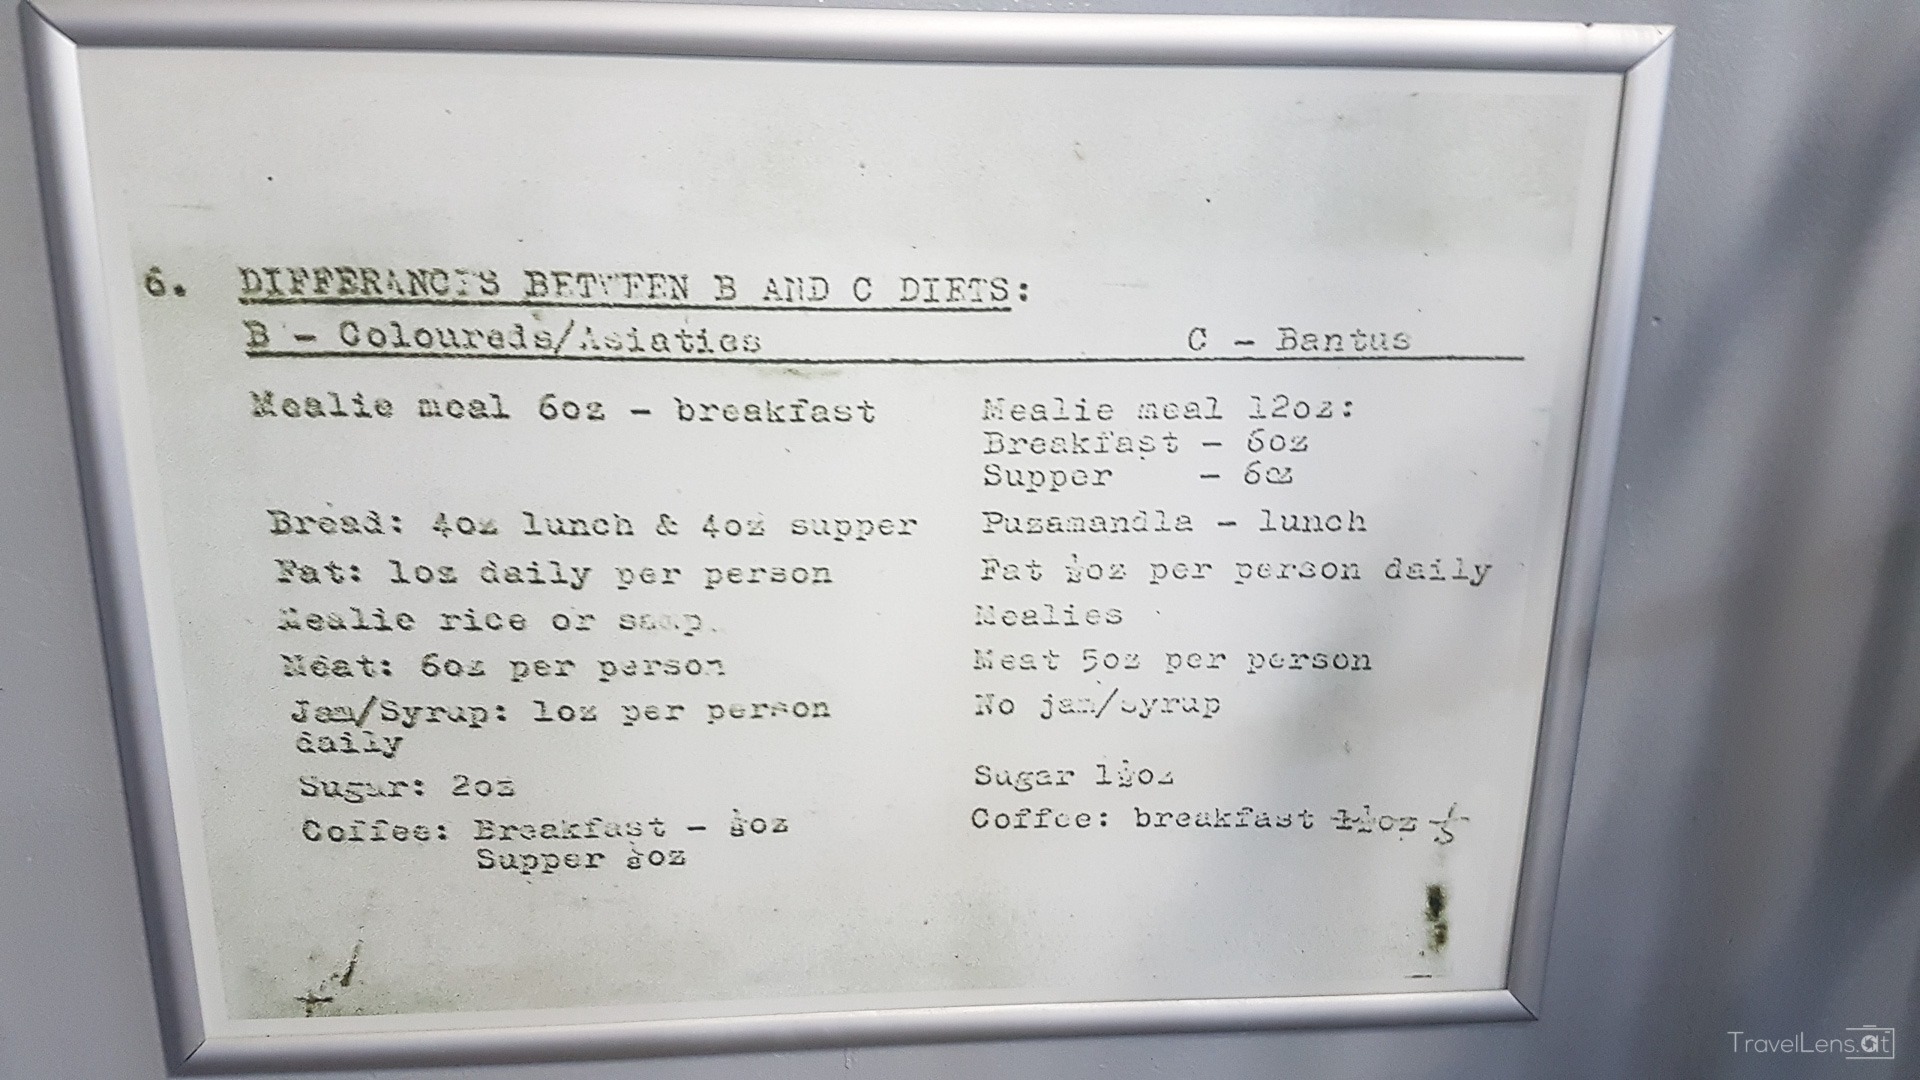 6. DIFFERANCES BETWEEN B AND C DIETS:
B - Coloureds/Asiatics C - Bantus
Mealie meal 6oz - breakfast Mealie meal 12oz:
Breakfast - 6oz
Supper - 6oz
Bread: 4oz lunch & 4oz supper Puzamandla - lunch
Fat: 1oz daily per person Fat ½oz per person daily
Mealie rice or samp. Mealies
Meat: 6oz per person Meat 5oz per person
Jam/Syrup: 1oz per person No jam/syrup
daily
Sugar: 2oz Sugar 1½oz
Coffee: Breakfast - oz Coffee: breakfast
Supper oz
TravelLens.at